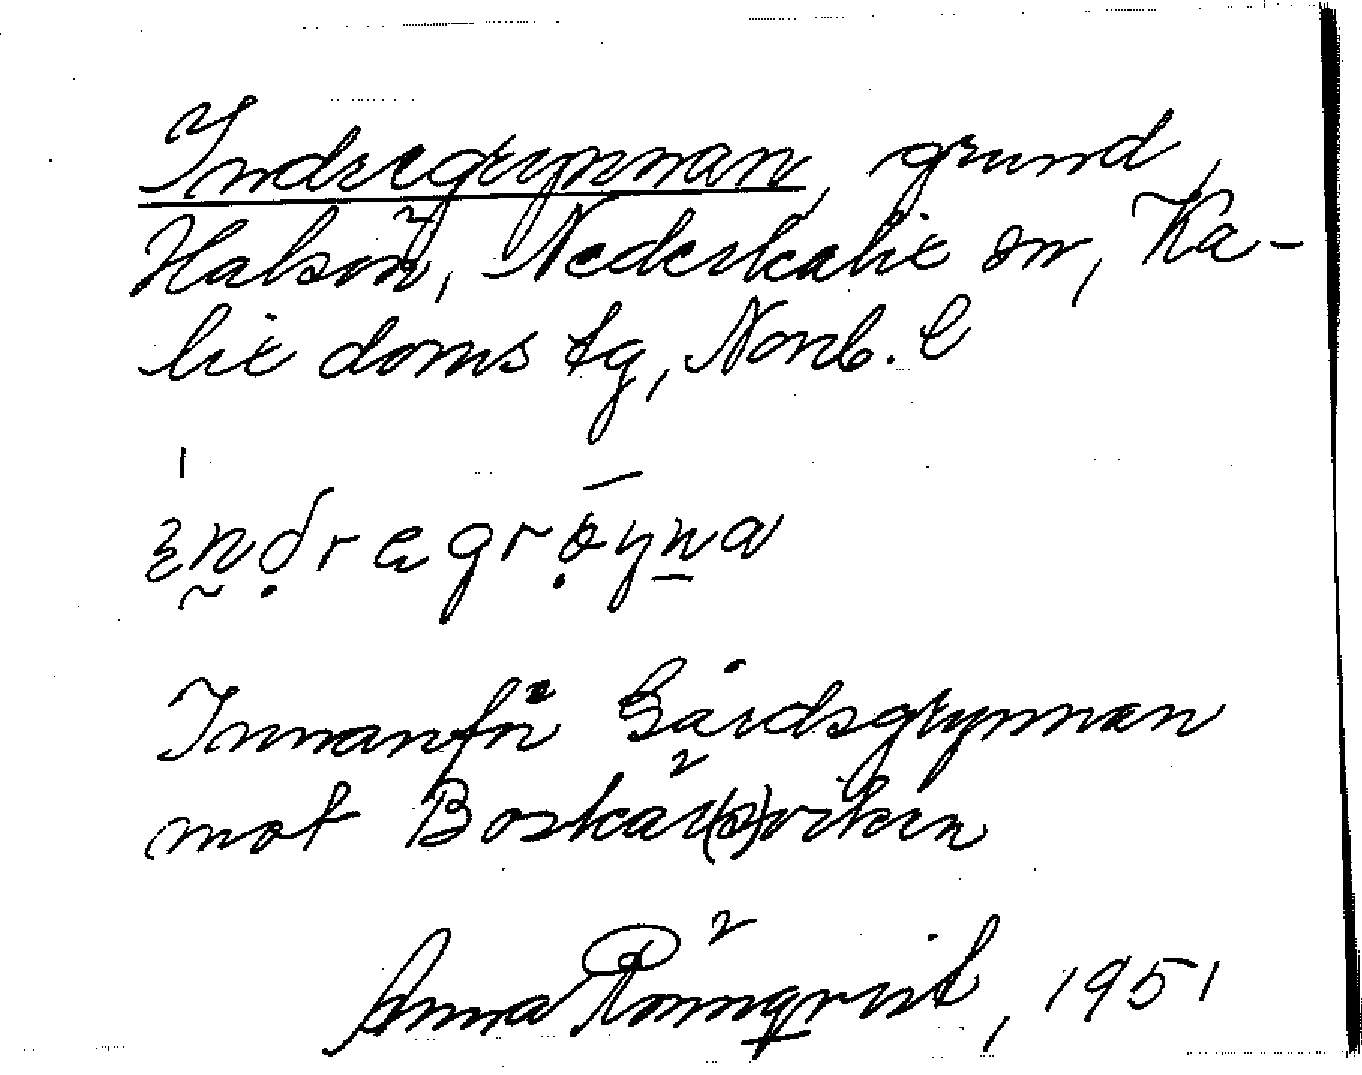 Indregrynnan, grund,
Halsön, Nederkalix sn, Ka-
lix domstg, Norrb. l
Innanför Gårdsgrynnan
mot Boskär(s)viken
Anna Rönnqvist, 1951